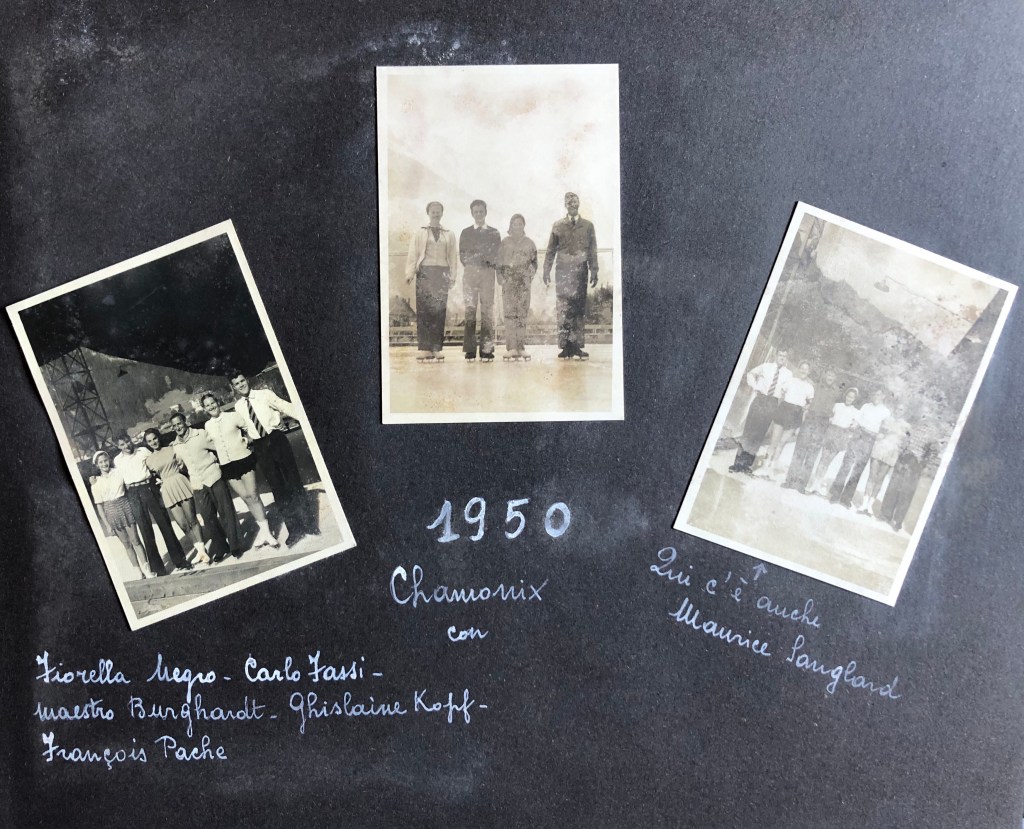 1950
Chamonix
con
Fiorella Negro - Carlo Fassi -
maestro Burghardt - Ghislaine Kopf -
François Pache
Qui c'è anche
Maurice Sanglard